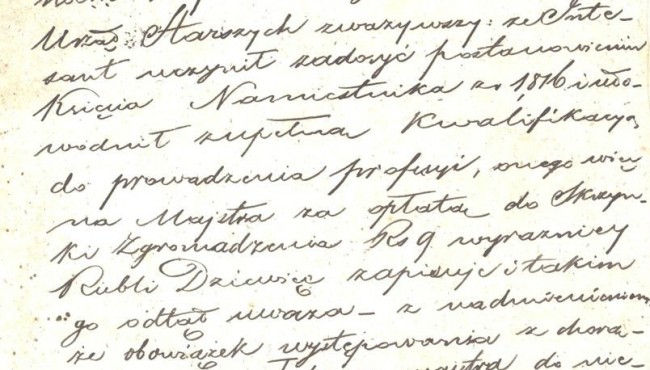 Urząd Starszych zważywszy: że Inte-
sant uczynił zadosyć postanowieniu
Księcia Namiestnika z r 1816 i udo-
wodnił zupełną Kwalifikacyą
do prowadzenia professyi, onego więc
na Majstra za opłatą do Skrzyn-
ki Zgromadzenia Rs 9 wyrazniej
Rubli Dziewięć zapisuje i takim
go odtąd uważa – z nadmienieniem
że obowiązek występowania z chorą-
do nie-